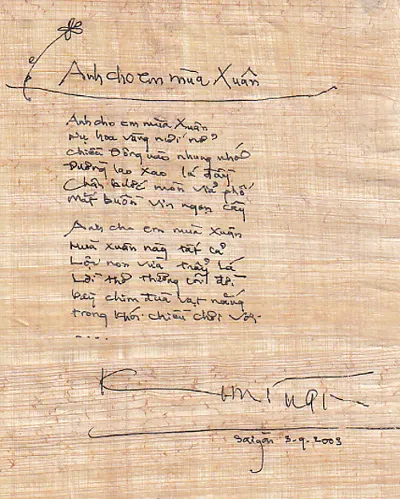 Anh cho em mùa Xuân
Anh cho em mùa Xuân
Nụ hoa vàng mới nở
chiều Đông nào nhung nhớ
Đường lao xao lá đầy
Chân bước mòn vỉa phố
Mắt buồn vin ngọn cây
Anh cho em mùa Xuân
Mùa xuân này tất cả
Lộc non vừa trẩy lá
Lời thơ thương cõi đời
Bầy chim đùa vạt nắng
trong khói chiều chơi vơi.
....
Saigon 3-9-2003